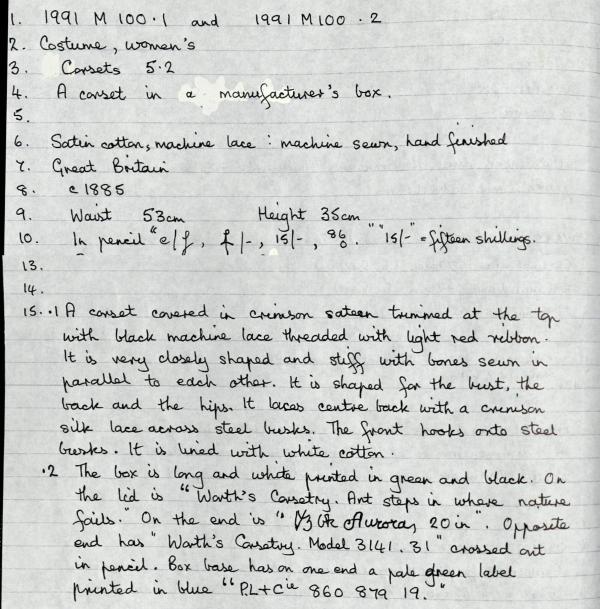 1. 1991 M 100.1 and 1991 M100 .2
2. Costume, women's
3. Corsets 5.2
4. A corset in a manufacturer's box.
5.
6. Satin cotton, machine lace : machine sewn, hand finished
7. Great Britain
8. c1885
9. Waist 53cm Height 35cm
10. In pencil "e/f, f/-, 15/-, 86/0. " "15/-" = fifteen shillings.
13.
14.
15. .1 A corset covered in crimson sateen trimmed at the top
with black machine lace threaded with light red ribbon.
It is very closely shaped and stiff with bones sewn in
parallel to each other. It is shaped for the bust, the
back and the hips. It laces centre back with a crimson
silk lace across steel busks. The front hooks onto steel
busks. It is lined with white cotton.
.2 The box is long and white printed in green and black. On
the lid is "Worth's Corsetry. Art steps in where nature
fails." On the end is " Aurora, 20 in". Opposite
end has "Worth's Corsetry. Model 3141.31" crossed out
in pencil. Box base has on one end a pale green label
printed in blue "P.L+Cie 860 879 19."